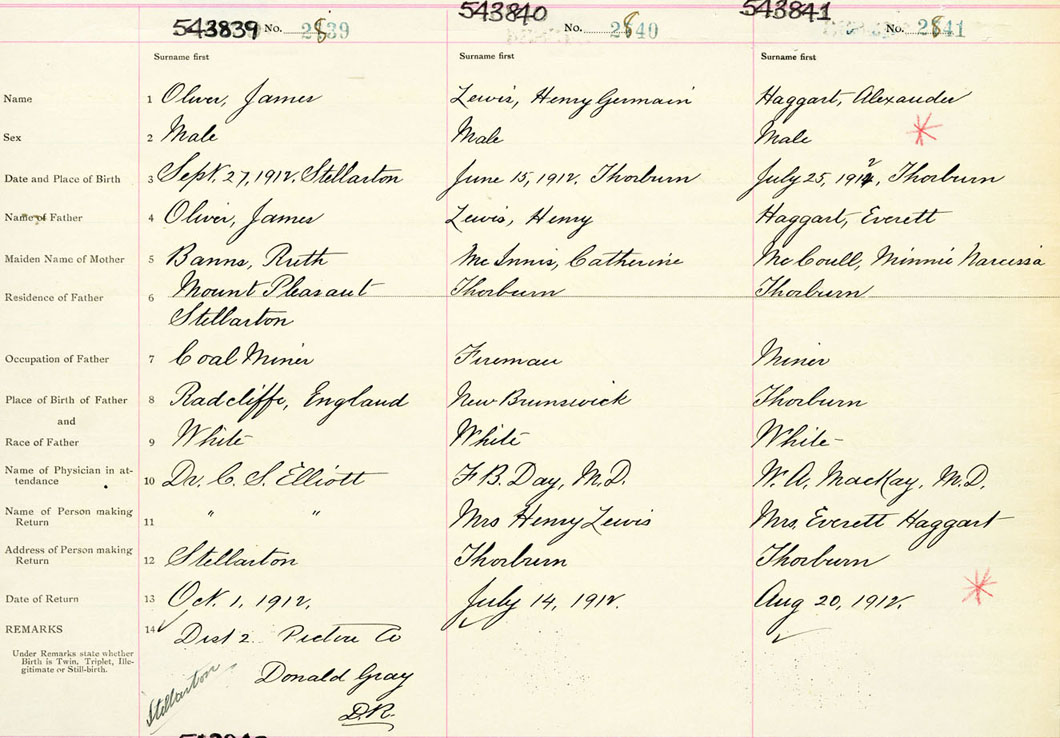 543839 No. 2839 543840 No. 2840 543841 No. 2841
Surname first Surname first Surname first
Name 1 Oliver, James Lewis, Henry Germain Haggart, Alexander
Sex 2 Male Male Male
Date and Place of Birth 3 Sept. 27, 1912, Stellarton June 15, 1912, Thorburn July 25, 1912, Thorburn
Name of Father 4 Oliver, James Lewis, Henry Haggart, Everett
Maiden Name of Mother 5 Banns, Ruth McInnis, Catherine McCoull, Minnie Narcissa
Residence of Father 6 Mount Pleasant Thorburn Thorburn
Stellarton
Occupation of Father 7 Coal Miner Fireman Miner
Place of Birth of Father 8 Radcliffe, England New Brunswick Thorburn
and
Race of Father 9 White White White
Name of Physician in at-
tendance 10 Dr. C. S. Elliott F. B. Day, M.D. W. A. MacKay, M.D.
Name of Person making
Return 11 " " Mrs Henry Lewis Mrs. Everett Haggart
Address of Person making
Return 12 Stellarton Thorburn Thorburn
Date of Return 13 Oct. 1, 1912, July 14, 1912. Aug 20, 1912.
REMARKS 14 Dist 2 Pictou Co
Under Remarks state whether
Birth is Twin, Triplet, Ille-
gitimate or Still-birth.
Stellarton Donald Gray
D.R.